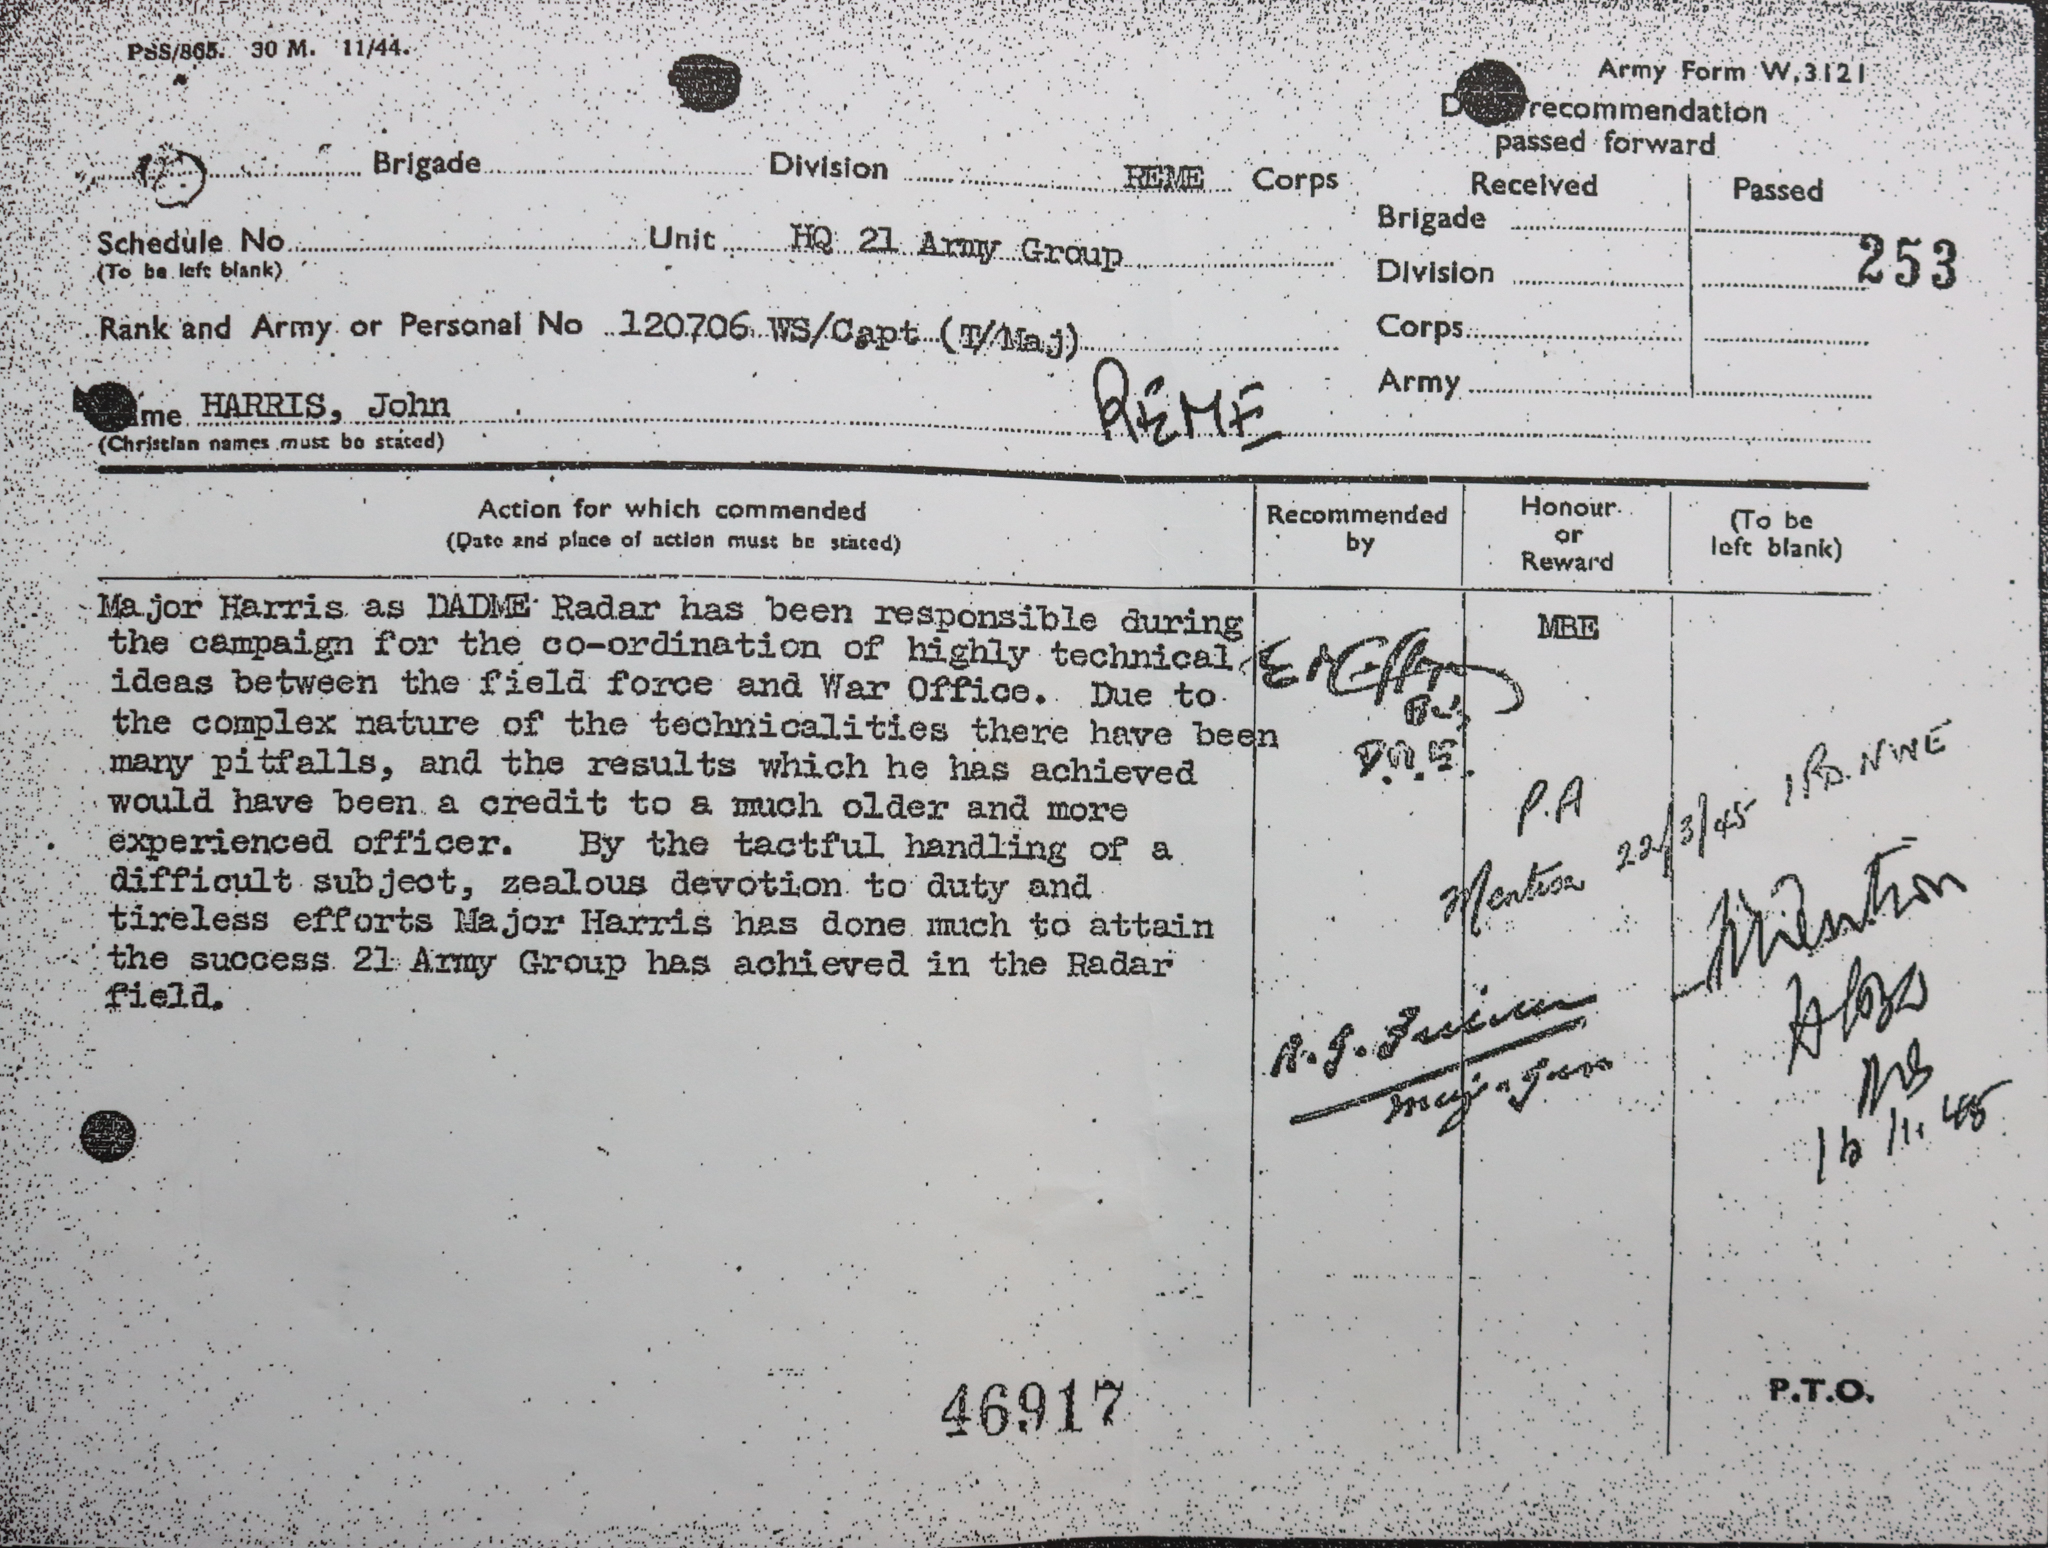 PSS/865. 30 M. 11/44.
Army Form W,3121
recommendation
passed forward
Brigade Division REME Corps
Received Passed
Brigade
Schedule No Unit HQ 21 Army Group
(To be left blank)
253
Division
Rank and Army or Personal No 120706 WS/Capt (T/Maj)
Corps
Army
HARRIS, John
REME
(Christian names must be stated)
Action for which commended
(Date and place of action must be stated)
Recommended
by
Honour
or
Reward
(To be
left blank)
Major Harris as DADME Radar has been responsible during
the campaign for the co-ordination of highly technical
ideas between the field force and War Office. Due to
the complex nature of the technicalities there have been
many pitfalls, and the results which he has achieved
would have been a credit to a much older and more
experienced officer. By the tactful handling of a
difficult subject, zealous devotion to duty and
tireless efforts Major Harris has done much to attain
the success 21 Army Group has achieved in the Radar
field.
MBE
P.A
Mention 22/3/45 NWE
Mention
46917
P.T.O.